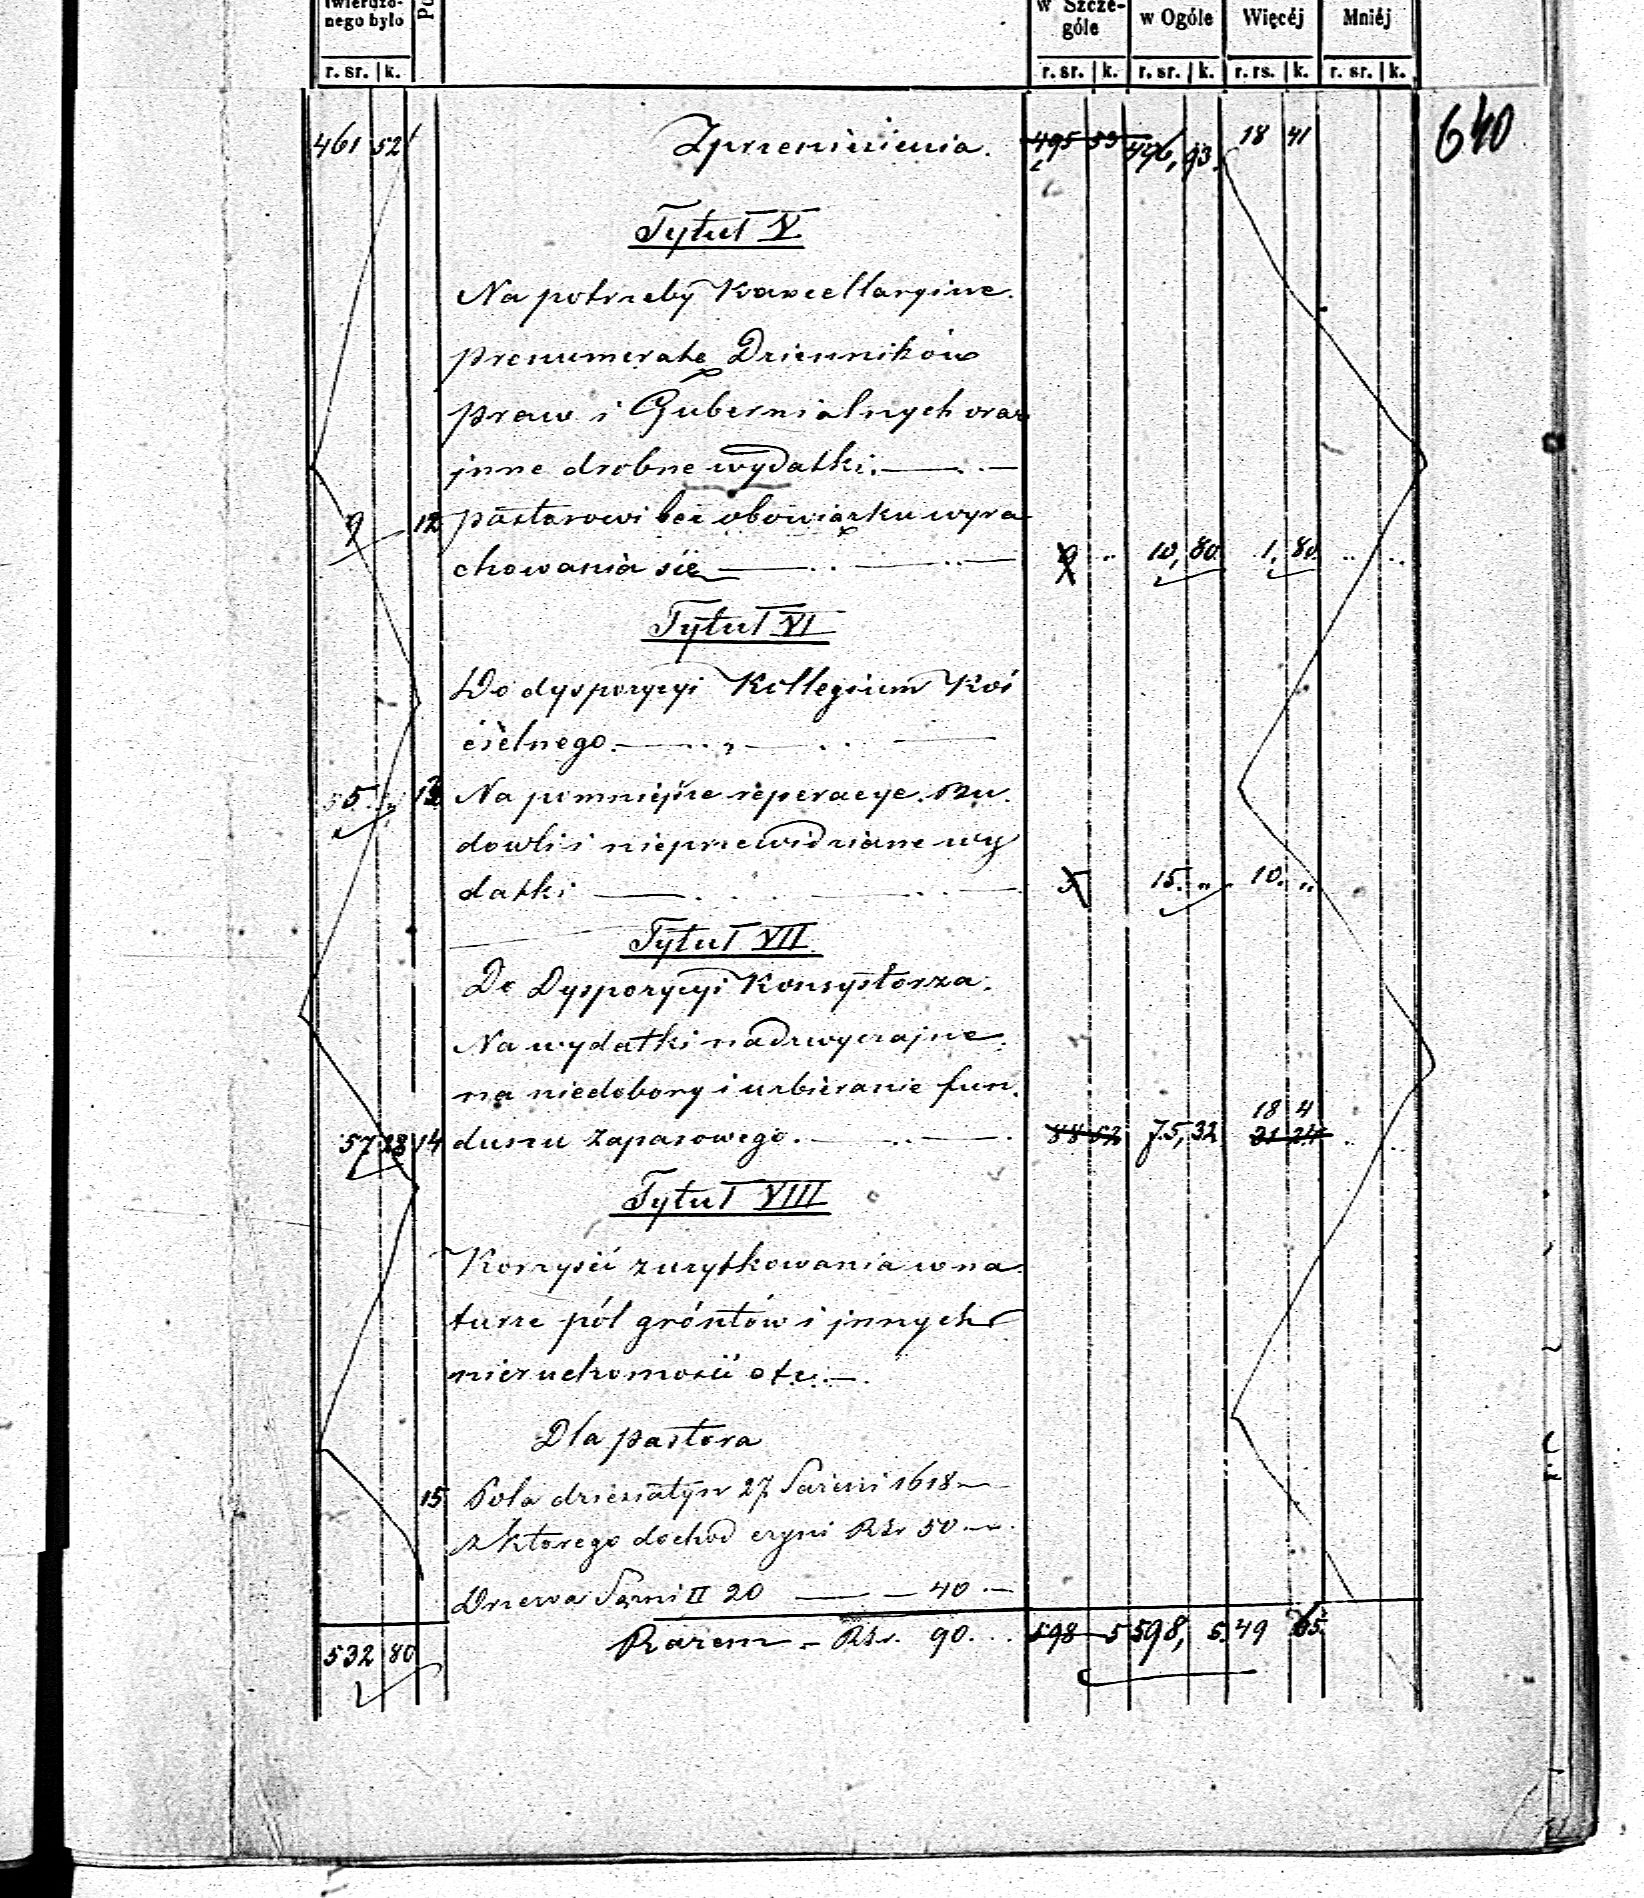 twierdzo- w Szcze- w Ogóle Więcéj Mniéj
nego było Po góle
r. sr. k. r. sr. k. r. sr. k. r. rs. k. r. sr. k.
461 52 Zprzeniesienia. 495 53 496, 93. 18 41 640
Tytuł V
Na potrzeby Kancellaryine.
prenumeratę Dzienników
praw i Gubernialnych oraz
jnne drobne wydatki.
9 12 pastorowi bez obowiązku wyra
chowania się 9 " 10, 80 1, 80 " "
Tytuł VI
Do dyspozycyi Kollegium Koś
cielnego.
5 " 13 Na pomniejsze reperacye. Bu.
dowli i nieprzewidziane wy
datki 5 15. " 10. "
Tytuł VII
Do Dyspozycyi Konsystorza.
Na wydatki nadzwyczajne.
na niedobory i uzbieranie fun.
18 4
57 28 14 duszu Zapasowego. 88 52 75, 32 21 24 " "
Tytuł VIII
Korzyści z użytkowania w na
turze pól gróntów i jnnych
nieruchomości etc.
Dla pastora
15 Pola dziesiatyn 27 Sażeni 1618
z którego dochod czyni RSr 50
Drzewa Sążni II 20 — 40
532 80 Razem - RSr. 90. 598 5 598, 5. 49 65.